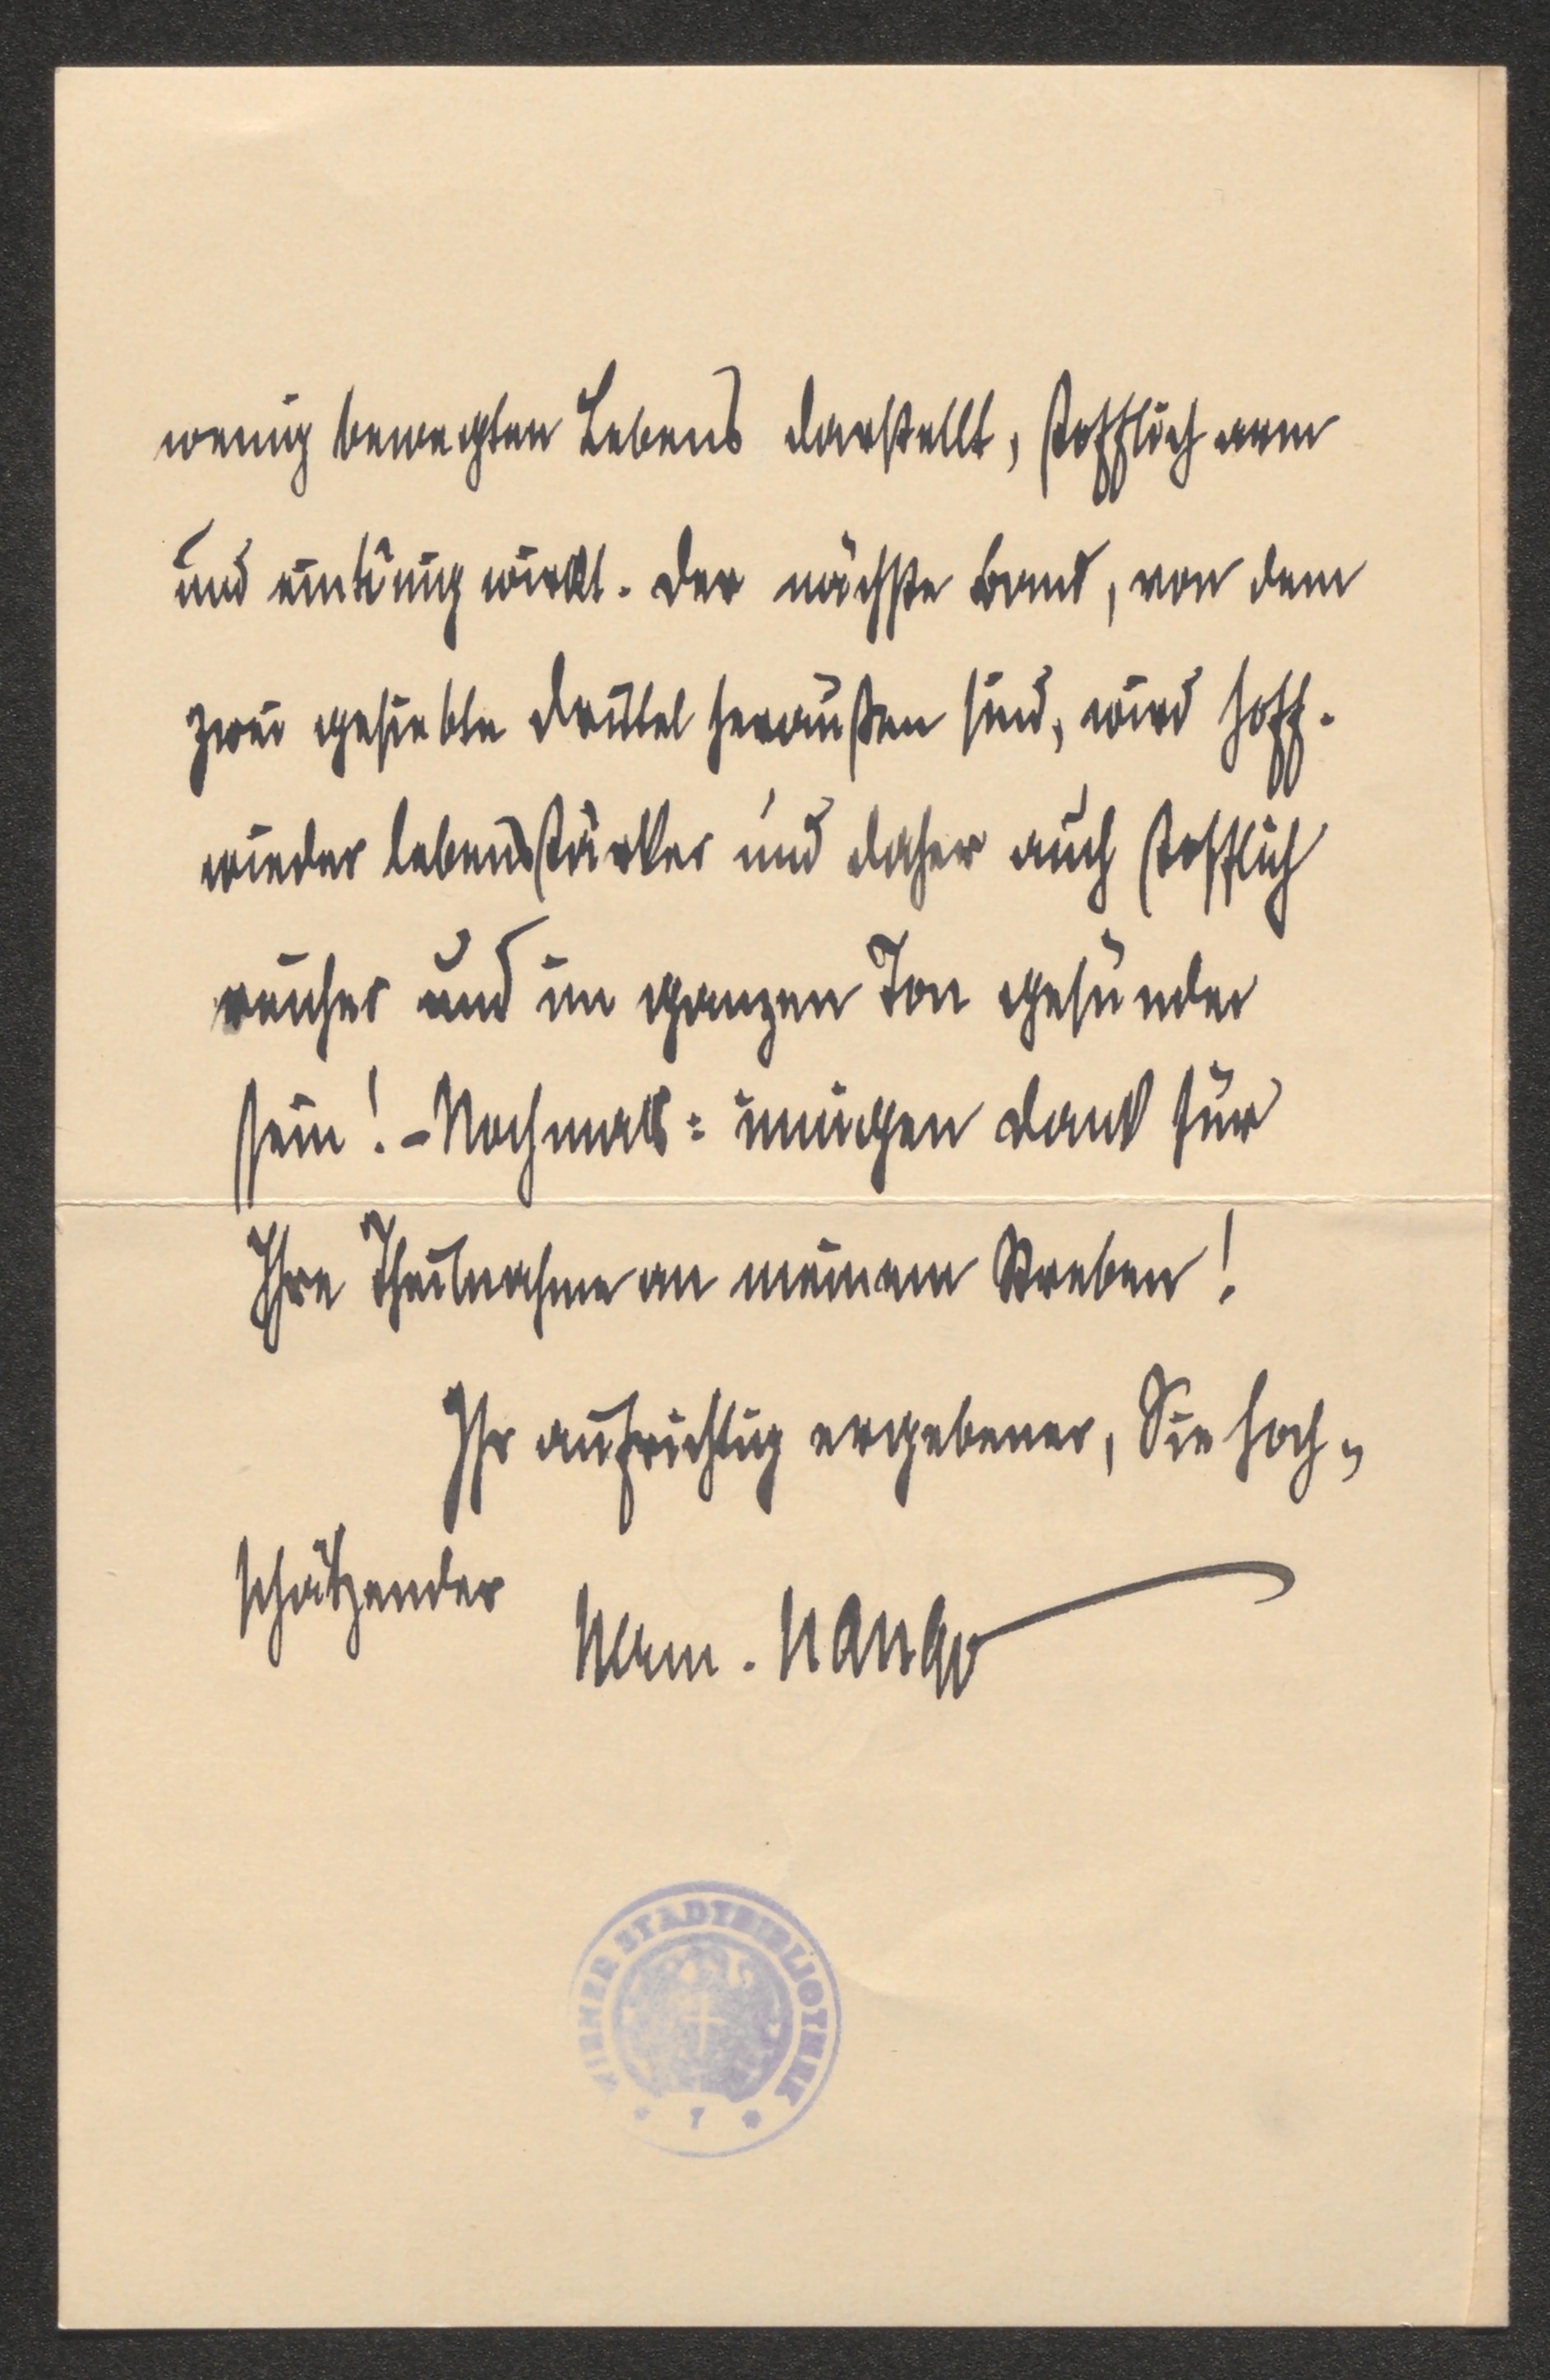 wenig bewegten Lebens darstellt, stofflich arm
und eintönig wirkt. Der nächste Band, von dem
zwei gesiebte Drittel heraußen sind, wird hoff.
wieder lebensstärker und daher auch stofflich
reicher und im ganzen Ton gesünder
sein! - Nochmals: innigen Dank für
Ihre Theilnahme an meinem Streben!
Ihr aufrichtig ergebener, Sie hoch-
schätzender
WIENER STADTBIBLIOTHEK
* 7 *